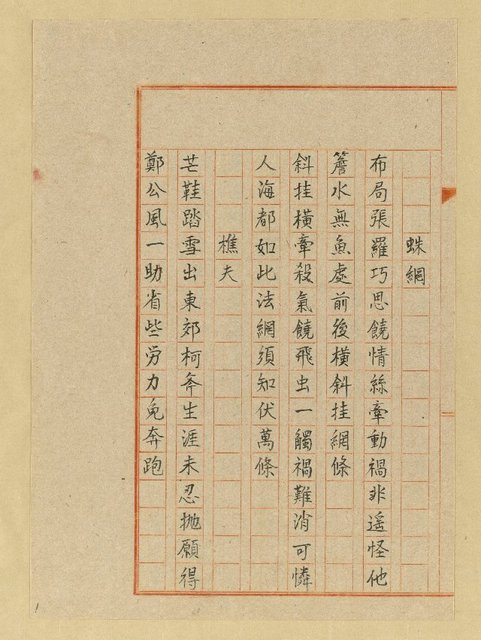 蛛網
布局張羅巧思饒情絲牽動禍非遥怪他
簷水無魚處前後橫斜挂網條
斜挂橫牽殺氣饒飛虫一觸禍難消可憐
人海都如此法網須知伏萬條
樵夫
芒鞋踏雪出東郊柯斧生涯未忍抛願得
鄭公風一助省些労力免奔跑